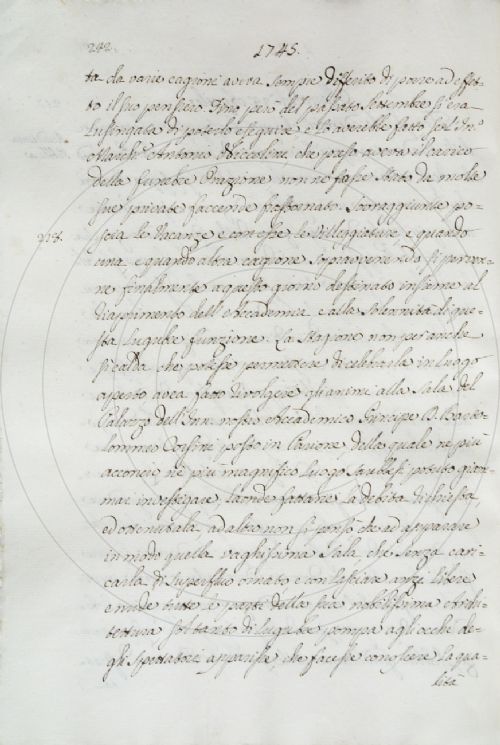 242.
1745.
ta da varie cagioni aveva sempre differito di porre ad effet-
to il suo pensiero. Fino però del passato Settembre si era
lusingata di poterlo eseguire e lo averebbe fatto se l'
March. Antonio Niccolini, che preso aveva il carico
della funebre Orazione non ne fosse stato da molte
sue private faccende frastornato. Sopraggiunte po-
scia le Vacanze e con esse le Villeggiature e quando
228.
una, e quando altra cagione sopravvenendo si perven-
ne finalmente a questo giorno destinato insieme al
riaprimento dell'Accademia, e alla solennità di que-
sta lugubre funzione. La Stagione non per anche
sì calda che potesse permettere di celebrarla in luogo
aperto avea fatto rivolgere gli animi alla Sala del
Palazzo dell' nostro Accademico Principe D. Barto-
lommeo Corsini posto in Parione, della quale nè più
acconcio nè più magnifico luogo sarebbesi potuto giam-
mai investigare, laonde fattane la debita richiesta,
ed ottenutala, ad altro non si pensò che ad apparare
in modo quella vaghissima Sala, che senza cari-
carla di superfluo ornato e con lasciare anzi libere
e nude tutte le parti della sua nobilissima Archi-
tettura soltanto di lugubre pompa agli occhi de-
gli spettatori apparisse, che facesse conoscere la qua-
lità